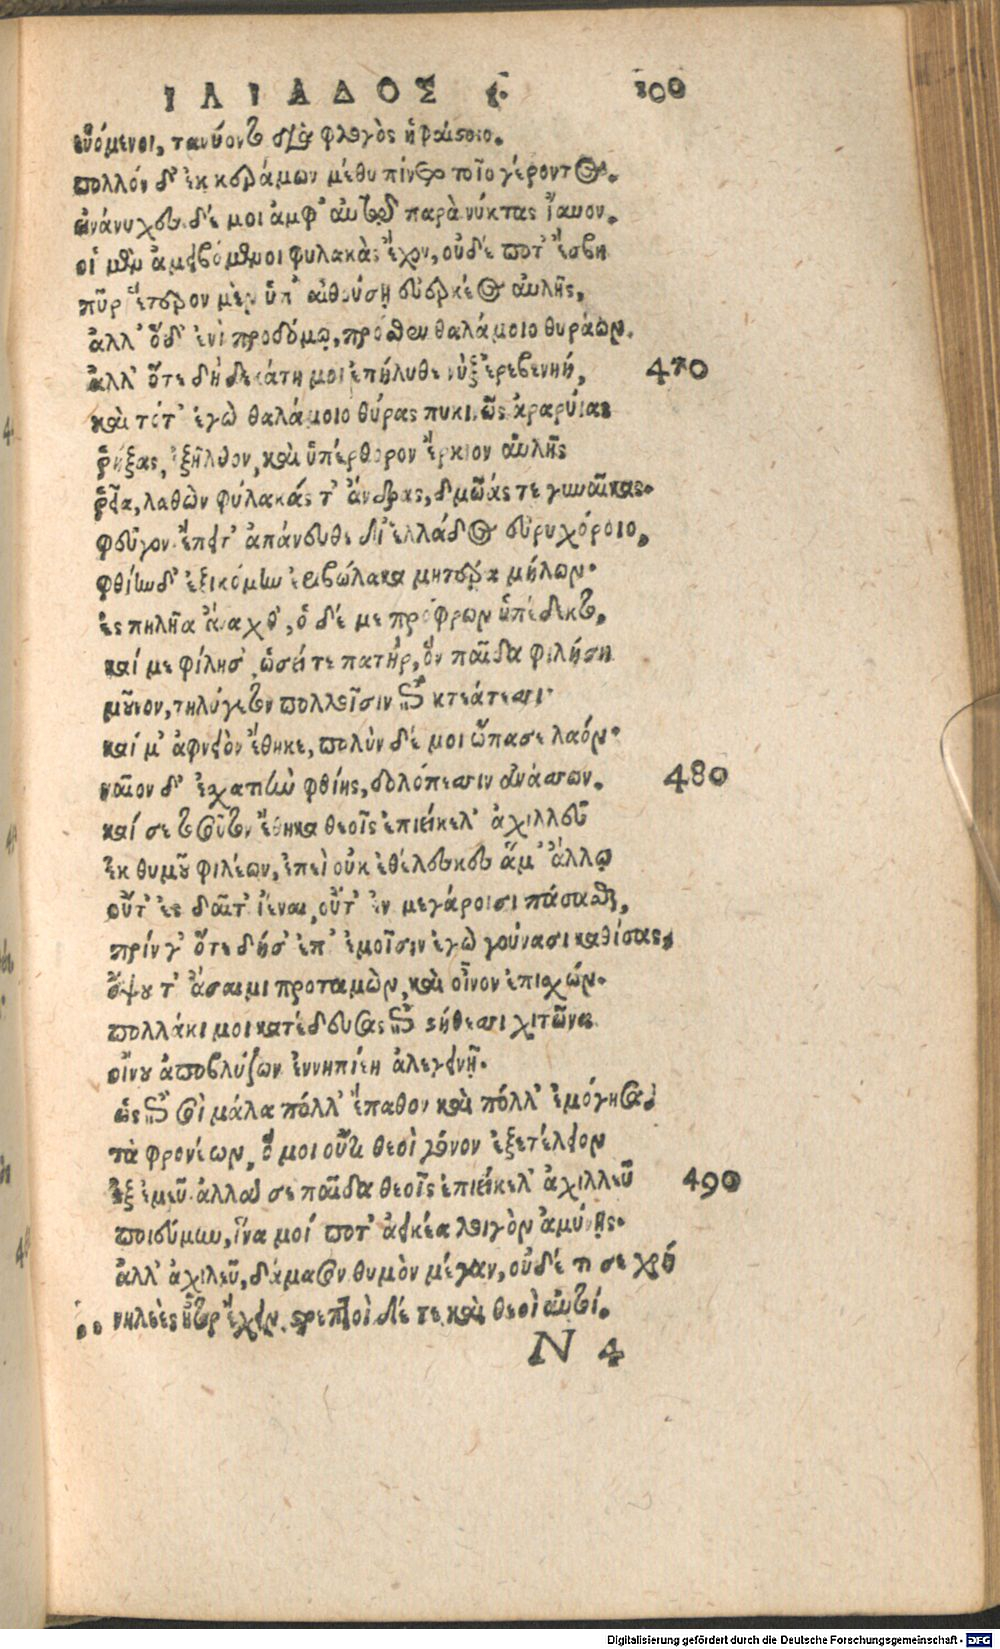 ΙΛΙΑΔΟΣ ι. 100
εὑόμενοι, τανύοντο διὰ φλογὸς ἡφαίστοιο.
πολλόν δ' ἐκ κεράμων μέθυ πίνετο τοῖο γέροντος.
ἀνάνυχες δέ μοι ἀμφ' αὐτῷ παρὰ νύκτας ἴαυον.
οἱ μὲν ἀμειβόμενοι φυλακὰς ἔχον, οὐδέ ποτ' ἔσβη
πῦρ ἕτερον μὲν ὑπ' αἰθούσῃ εὐερκέος αὐλῆς,
ἀλλ' ὅδ' ἐνὶ προδόμῳ, πρόσθεν θαλάμοιο θυράων.
ἀλλ' ὅτε δὴ δεκάτη μοι ἐπήλυθε νὺξ ἐρεβεννή, 470
καὶ τότ' ἐγὼ θαλάμοιο θύρας πυκινῶς ἀραρυίας
ῥήξας, ἐξῆλθον, καὶ ὑπέρθορον ἕρκιον αὐλῆς
ῥεῖα, λαθὼν φύλακάς τ' ἄνδρας, δμωάς τε γυναῖκας.
φεῦγον ἔπειτ' ἀπάνευθε δι' ἑλλάδος εὐρυχόροιο,
φθίην δ' ἐξικόμην ἐριβώλακα μητέρα μήλων.
ἐς πηλῆα ἄναχθ', ὁ δέ με πρόφρων ὑπέδεκτο,
καί με φίλησ', ὡσεί τε πατὴρ, ὃν παῖδα φιλήσῃ
μοῦνον, τηλύγετον πολλοῖσιν ἐπὶ κτεάτεσσι·
καί μ' ἀφνειὸν ἔθηκε, πολὺν δέ μοι ὤπασε λαόν.
ναῖον δ' ἐσχατιὴν φθίης, δολόπεσσιν ἀνάσσων. 480
καί σε τοσοῦτον ἔθηκα θεοῖς ἐπιείκελ' ἀχιλλεῦ
ἐκ θυμοῦ φιλέων, ἐπεὶ οὐκ ἐθέλεσκες ἅμ' ἄλλῳ
οὔτ' ἐς δαῖτ' ἰέναι, οὔτ' ἐν μεγάροισι πάσασθαι,
πρίν γ' ὅτε δή σ' ἐπ' ἐμοῖσιν ἐγὼ γούνασι καθίσας,
ὄψου τ' ἄσαιμι προταμὼν, καὶ οἶνον ἐπισχών.
πολλάκι μοι κατέδευσας ἐπὶ στήθεσσι χιτῶνα
οἴνου ἀποβλύζων ἐν νηπιέῃ ἀλεγεινῇ.
ὣς ἐπὶ σοὶ μάλα πόλλ' ἔπαθον καὶ πόλλ' ἐμόγησα,
τὰ φρονέων, ὅ μοι οὔτι θεοὶ γόνον ἐξετέλειον
ἐξ ἐμεῦ· ἀλλὰ σε παῖδα θεοῖς ἐπιείκελ' ἀχιλλεῦ 490
ποιεύμην, ἵνα μοί ποτ' ἀεικέα λοιγὸν ἀμύνῃς.
ἀλλ' ἀχιλεῦ, δάμασον θυμὸν μέγαν, οὐδέ τι σε χρή
νηλεὲς ἦτορ ἔχειν, στρεπτοὶ δέ τε καὶ θεοὶ αὐτοί.
N 4
Digitalisierung gefördert durch die Deutsche Forschungsgemeinschaft - DFG